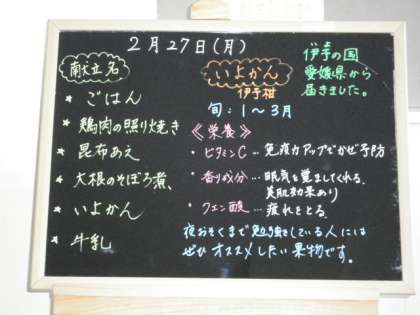 2月27日(月)
献立名
★ ごはん
★ 鶏肉の照り焼き
★ 昆布あえ
★ 大根のそぼろ煮
★ いよかん
★ 牛乳
いよかん
伊予柑
伊予の国
愛媛県から
届きました。
旬:1〜3月
《栄養》
・ビタミンC…免疫力アップでかぜ予防
・香り成分…眠気を覚ましてくれる。
美肌効果あり
・クエン酸…疲れをとる。
夜おそくまで勉強をしている人には
ぜひオススメしたい果物です。